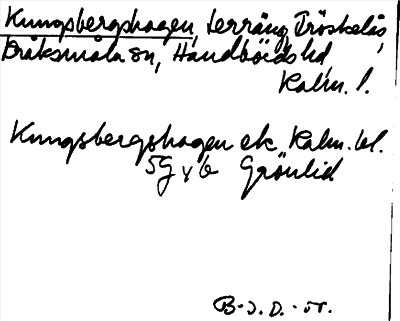 Kungsbergshagen, terräng, Tröskelås,
Bråksmåla sn, Handbörds hd,
Kalm. l.
Kungsbergshagen ek. Kalm. bl.
5G y b Grönlid
B.-J. D. -